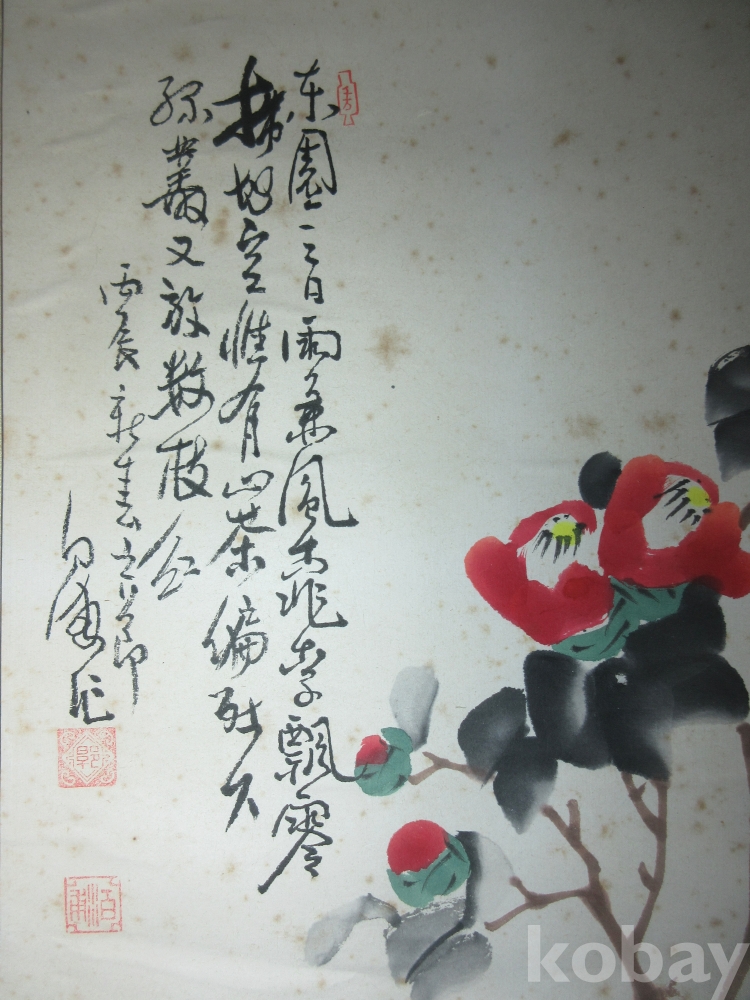 东園三日雨兼風桃李飄零
掃地空惟有山茶偏耐久
綠叢又放数枝红
丙辰新春之節
作
郭
kobay